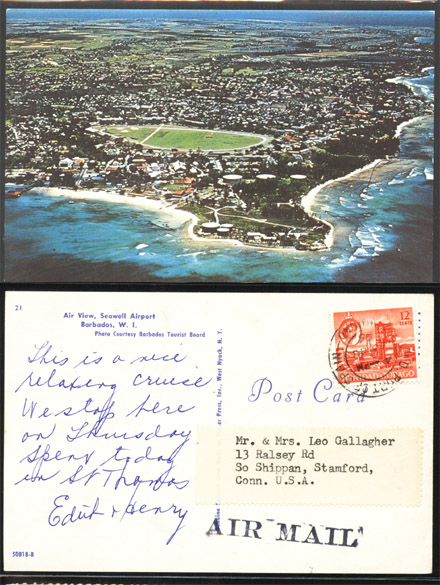 21
Air View, Seawell Airport
Barbados, W. I.
Photo Courtesy Barbados Tourist Board
This is a nice
relaxing cruise
We stop here
on Thursday
Spent today
in St Thomas
Edith & Henry
50818-B
Press, Inc., West Nyack, N. Y.
Post Card
12
CENTS
TRINIDAD & TOBAGO
Mr. & Mrs. Leo Gallagher
13 Ralsey Rd
So Shippan, Stamford,
Conn. U.S.A.
AIR MAIL